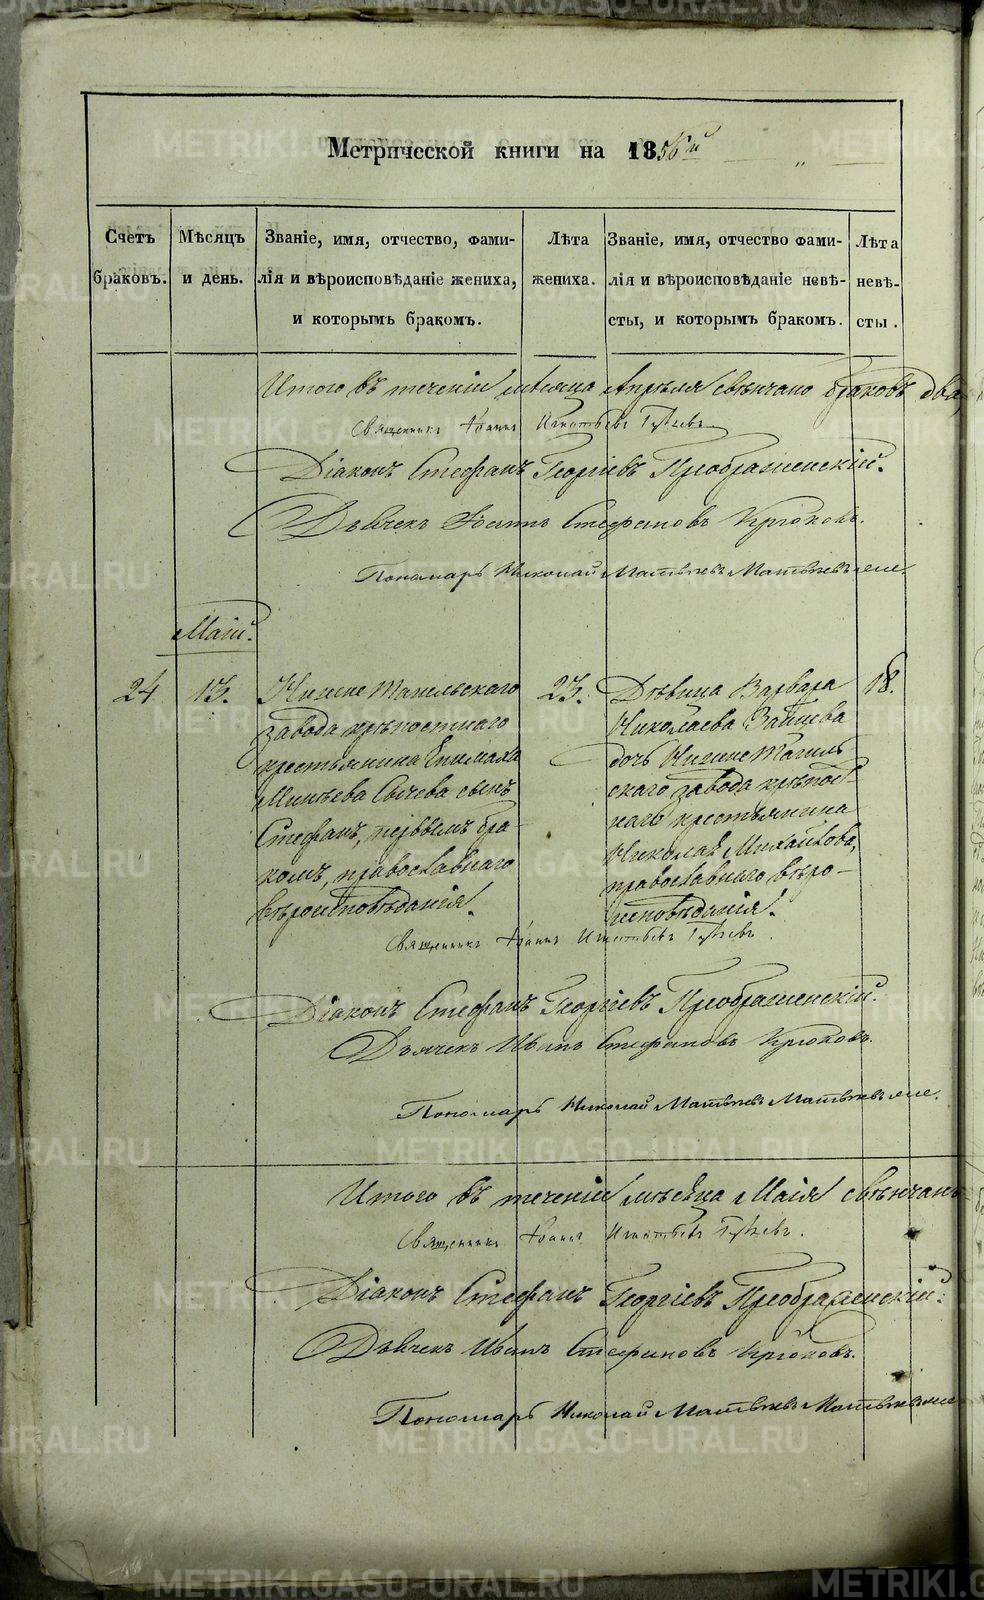 Метрической книги на 1856й
Счетъ браковъ.
Мѣсяцъ и день.
Званіе, имя, отчество, фами-
лія и вѣроисповѣданіе жениха,
и которымъ бракомъ.
Лѣта жениха.
Званіе, имя, отчество фами-
лія и вѣроисповѣданіе невѣ-
сты, и которымъ бракомъ.
Лѣта невѣ-
сты.
Итого въ теченіи мѣсяца Апрѣля свѣнчано браковъ два,
Священникъ Іоаннъ Игнатьевъ
Діаконъ Стефанъ Георгіевъ Преображенскій.
Дьячекъ Іоаннъ Стефановъ Крюковъ.
Пономарь Николай Матвѣевъ
Маій.
24
13.
Нижне Тагильскаго
завода крѣпостнаго
крестьянина Епимаха
Минѣева Сычева сынъ
Стефанъ, первымъ бра-
комъ, православнаго
вѣроисповѣданія.
23.
Дѣвица Варвара
Николаева Зайцева
дочь Нижне Тагиль
скаго завода крѣпост-
наго крестьянина
Николая Михайлова,
православнаго вѣро-
исповѣданія.
18.
Священникъ Іоаннъ Игнатьевъ
Діаконъ Стефанъ Георгіевъ Преображенскій.
Дьячекъ Иванъ Стефановъ Крюковъ.
Пономарь Николай Матвѣевъ
Итого въ теченіи мѣсяца Маія свѣнчан
Священникъ Іоаннъ Игнатьевъ
Діаконъ Стефанъ Георгіевъ Преображенскій.
Дьячекъ Иванъ Стефановъ Крюковъ.
Пономарь Николай Матвѣевъ
METRIKI.GASO-URAL.RU